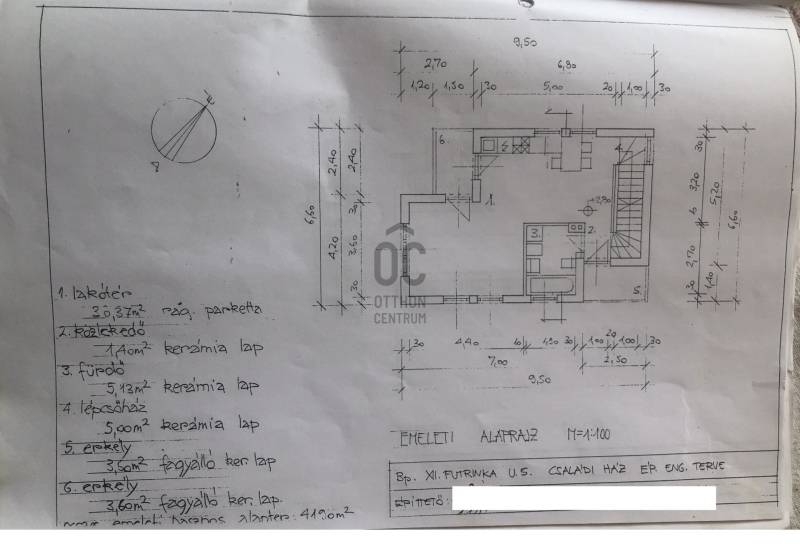 9,50
2,70 6,80
1,20 1,50 20 5,00 20 1,00 30
6,60
2,40 2,40
4,20 30 3,60 30
30 3,20 5,20
6,60
2,70 1,40 30
6.
4.
1.
+2,90
3. 2.
5.
ÓC
OTTHON
CENTRUM
30 4,40 10 1,90 30 1,00 20 1,00 30
7,00 2,50
9,50
1. lakótér
30,37m² rag. parketta
2. közlekedő
1,40m² kerámia lap
3. fürdő
5,13m² kerámia lap
4. lépcsőház
5,00m² kerámia lap
5. erkély
3,50m² fagyálló ker. lap
6. erkély
3,60m² fagyálló ker. lap.
emeleti hasznos alapter. 41,90m²
EMELETI ALAPRAJZ M=1:100
Bp. XII. FUTRINKA U. 5. CSALÁDI HÁZ ÉP. ENG. TERVE
ÉPÍTTETŐ: